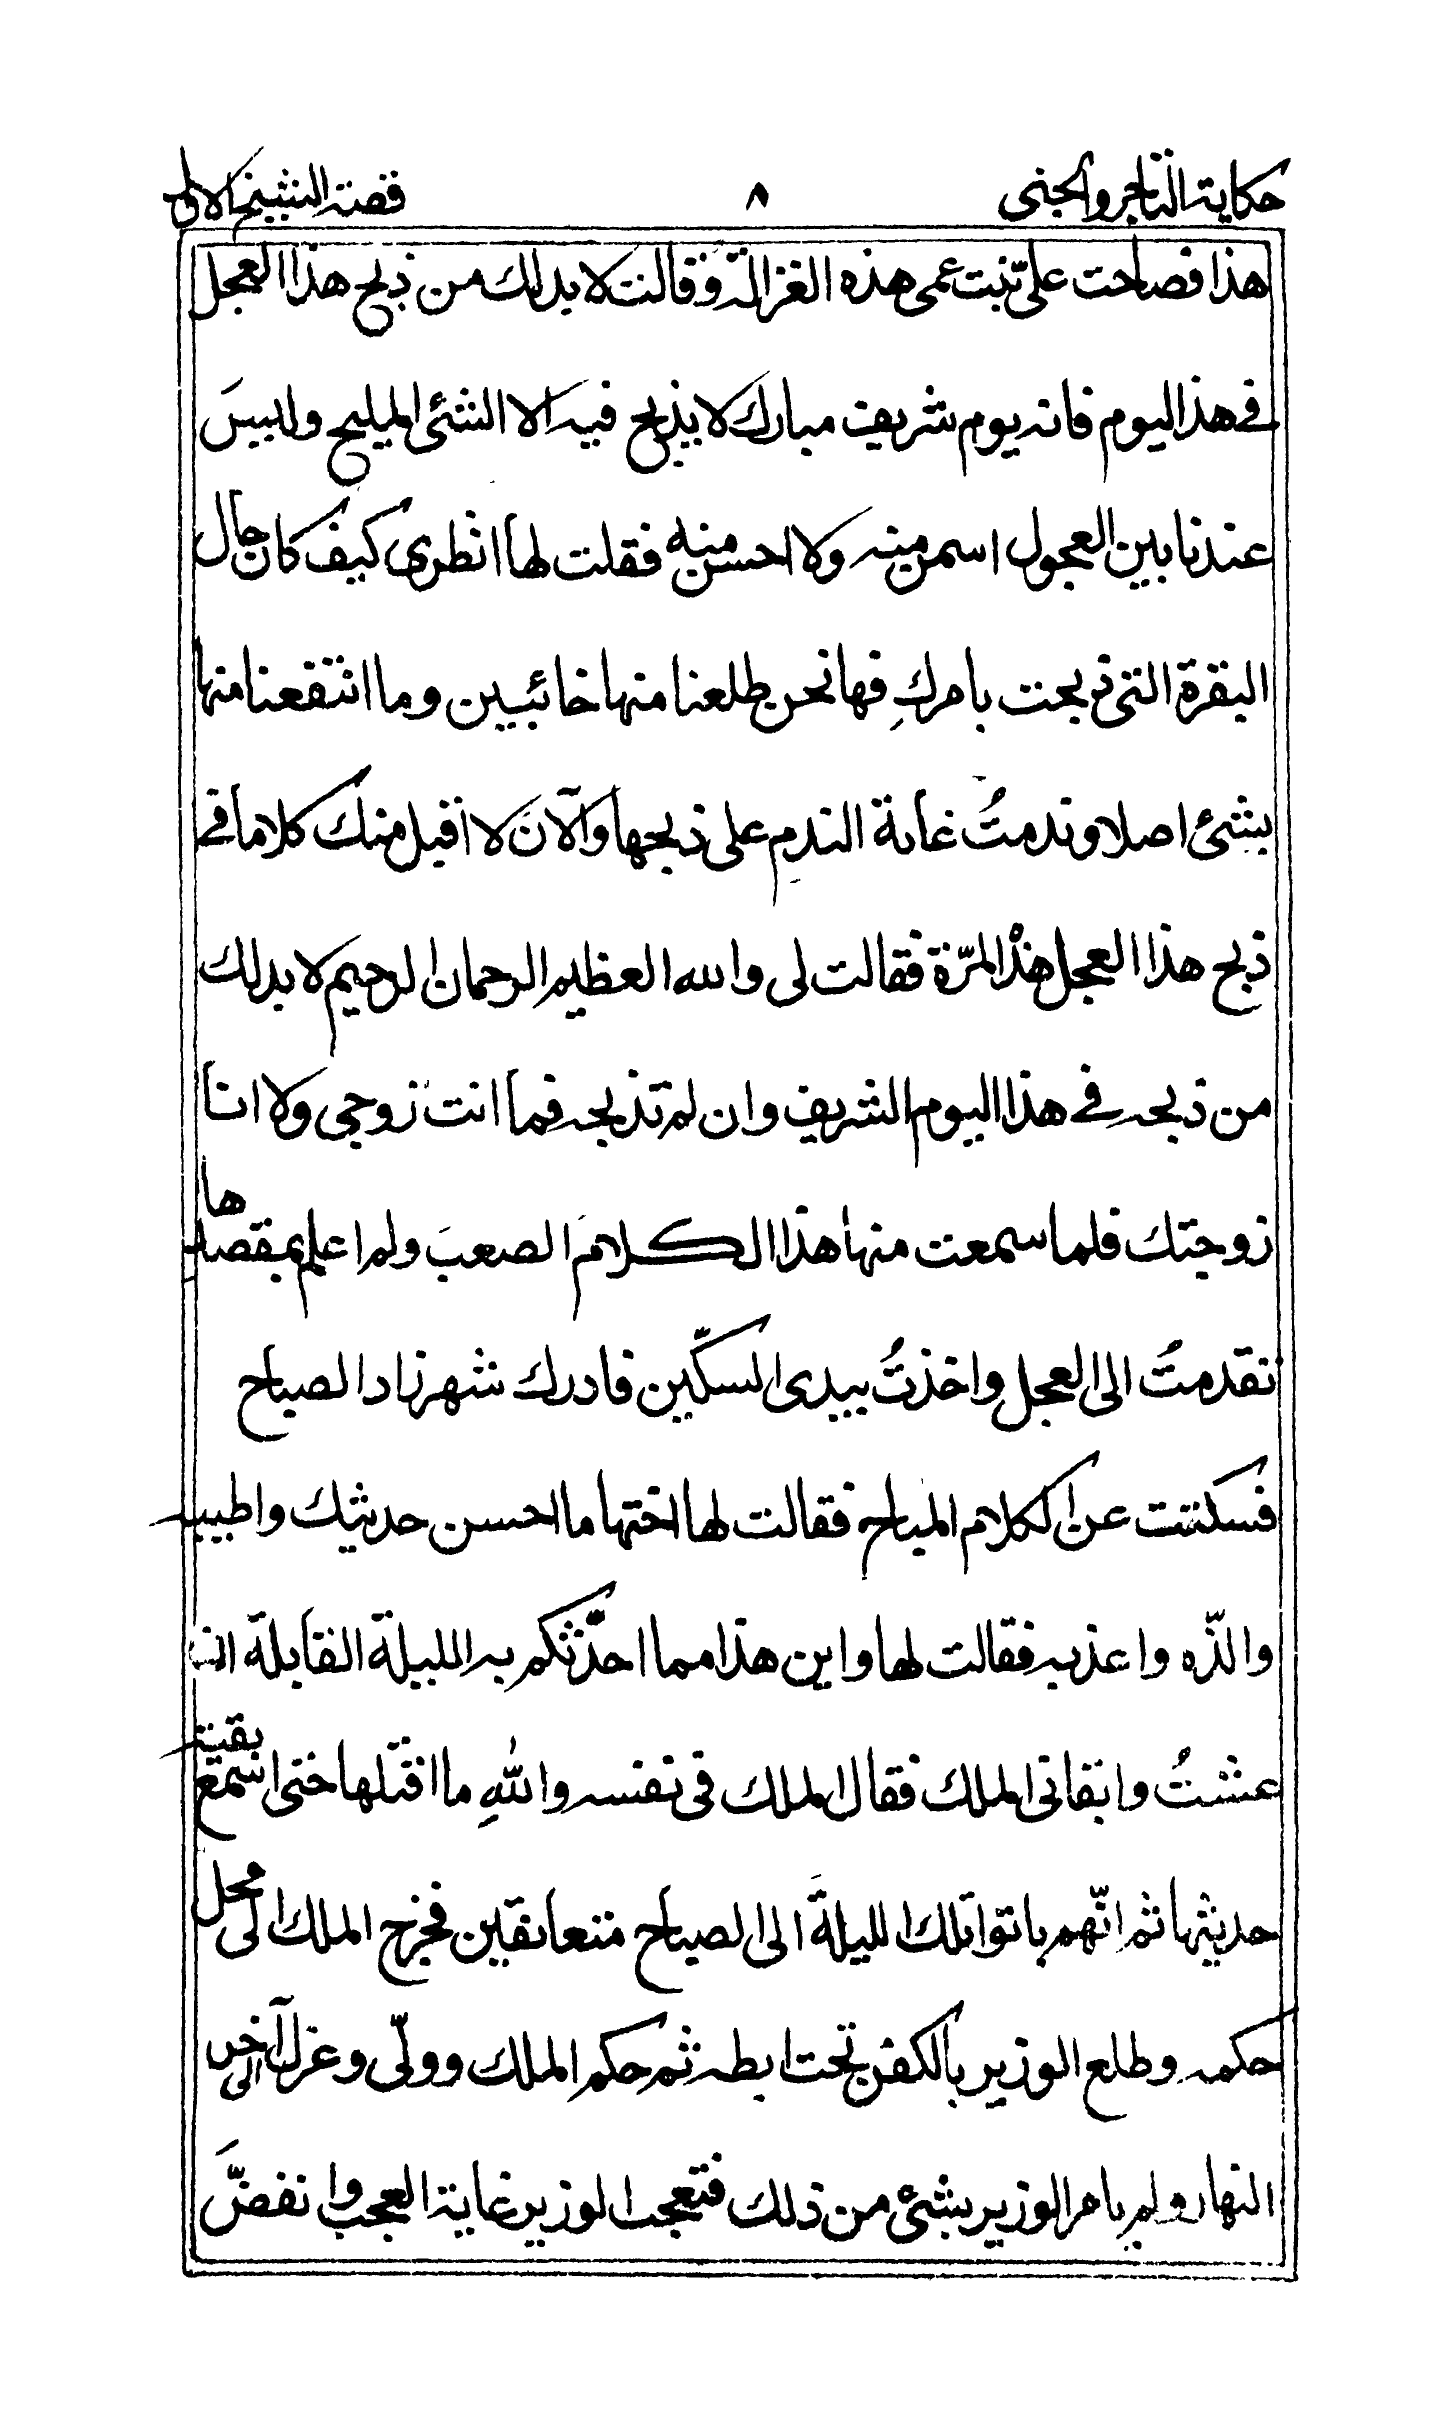 حكاية التاجر والجني ٨ قصة الشيخ الاول
هذا فصاحت علىّ بنت عمى هذه الغزالة وقالت لا بد لك من ذبح هذا العجل
فى هذا اليوم فانه يوم شريف مبارك لا يذبح فيه الا الشئ المليح وليسَ
عندنا بين العجول اسمن منه ولا احسن منه فقلت لها انظرى كيف كان حال
البقرة التى ذبحت بامركِ فها نحن طلعنا منها خائبين وما انتفعنا منها
بشئ اصلا وندمتُ غاية الندمِ على ذبحها والآنَ لا اقبل منك كلاما فى
ذبح هذا العجل هٰذه المرّة فقالت لى والله العظيم الرحمان الرحيم لا بد لك
من ذبحه فى هذا اليوم الشريف وان لم تذبحه فما انت زوجى ولا انا
زوجتك فلما سمعت منها هذا الكلامَ الصعبَ ولم اعلم بمقصدها
تقدمتُ الى العجل واخذتُ بيدى السكّين فادرك شهرزاد الصباح
فسكتت عن الكلام المباح فقالت لها اختها ما احسن حديثك واطيبه
والذّه واعذبه فقالت لها واين هذا مما احدّثكم به الليلة القابلة ان
عشتُ وابقانى الملك فقال الملك فى نفسه واللهِ ما اقتلها حتى اسمع بقية
حديثها ثم انّهم باتوا تلك الليلةَ الى الصباح متعانقين فخرج الملك الى محل
حكمه وطلع الوزير بالكفن تحت ابطه ثم حكم الملك وولّى وعزل الى آخر
النهار ولم يامر الوزير بشئ من ذلك فتعجب الوزير غاية العجب وانفضَّ